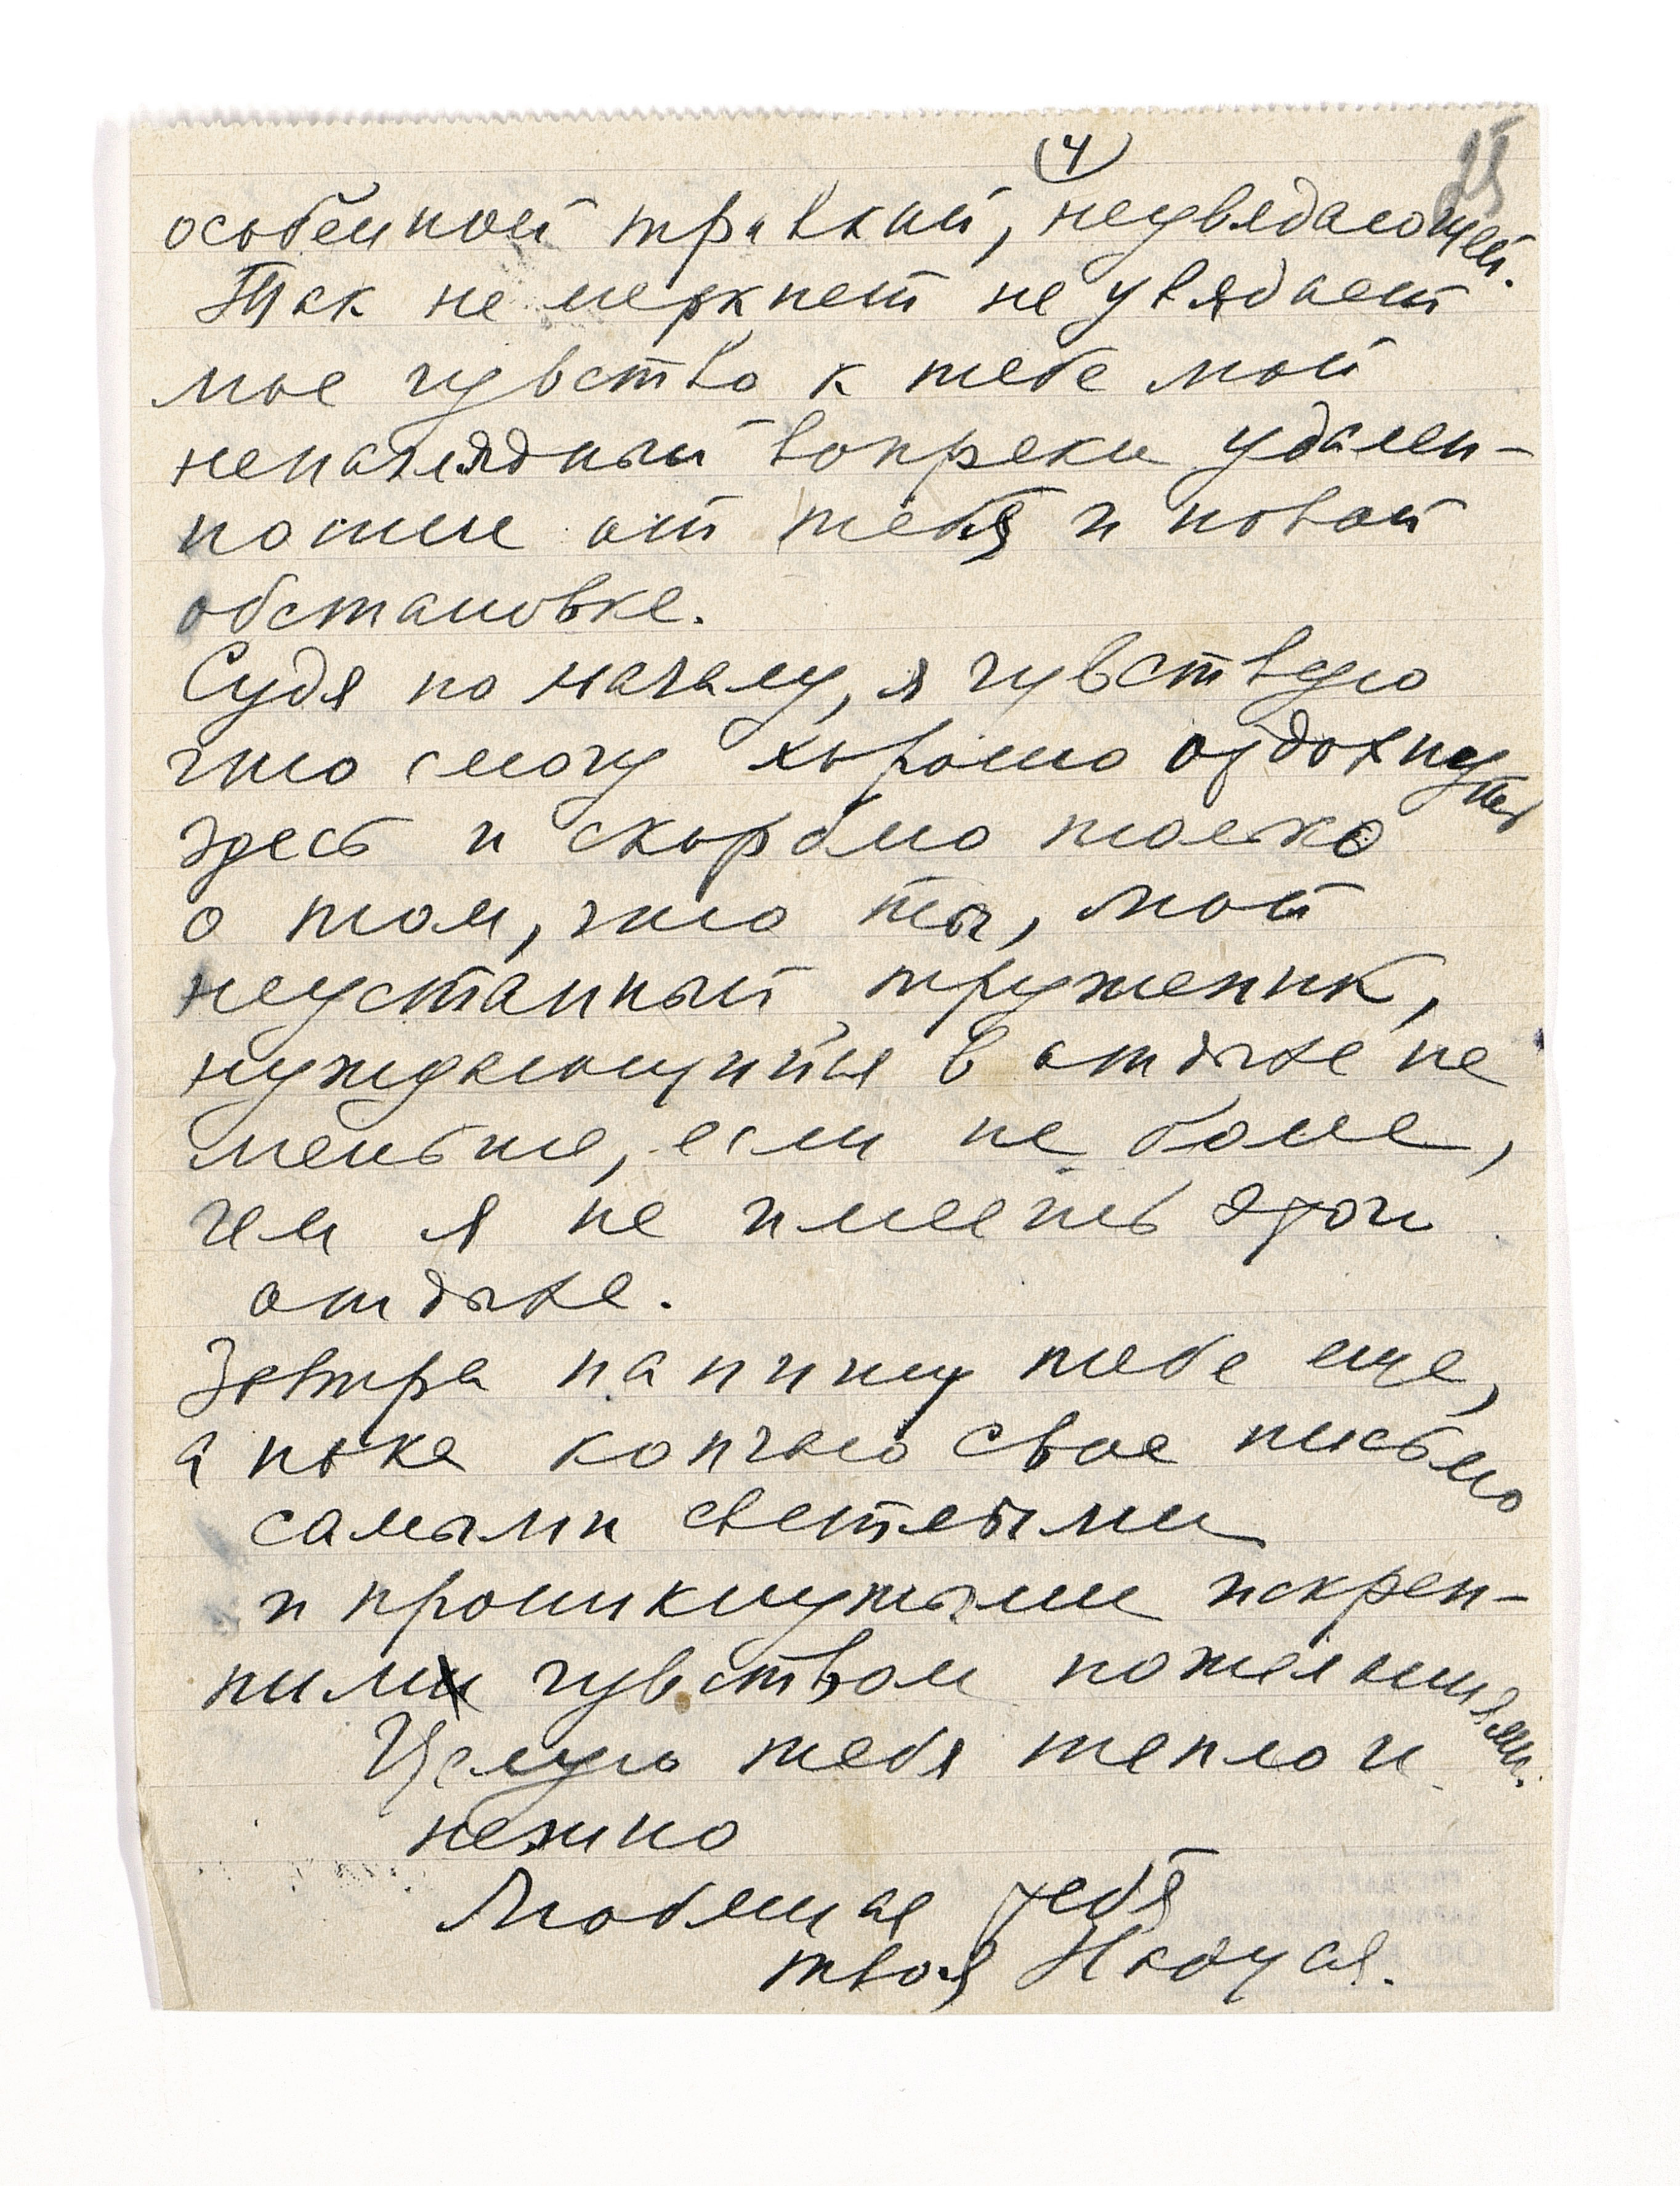 4
25
особенной травкой, неувядающей.
Так не меркнет не увядает
мое чувство к тебе мой
ненаглядный вопреки удален-
ности от тебя и новой
обстановке.
Судя по началу, я чувствую
что смогу хорошо отдохнуть
здесь и скорблю только
о том, что ты, мой
неустанный труженик,
нуждающийся в отдыхе не
меньше, если не более,
чем я не имеешь этой
отдыхе.
Завтра напишу тебе еще,
а пока кончаю свое письмо
самыми светлыми
и проникнутыми искрен-
ним чувством пожеланиями.
Целую тебя тепло и
нежно
Любящая тебя
твоя Надуся.